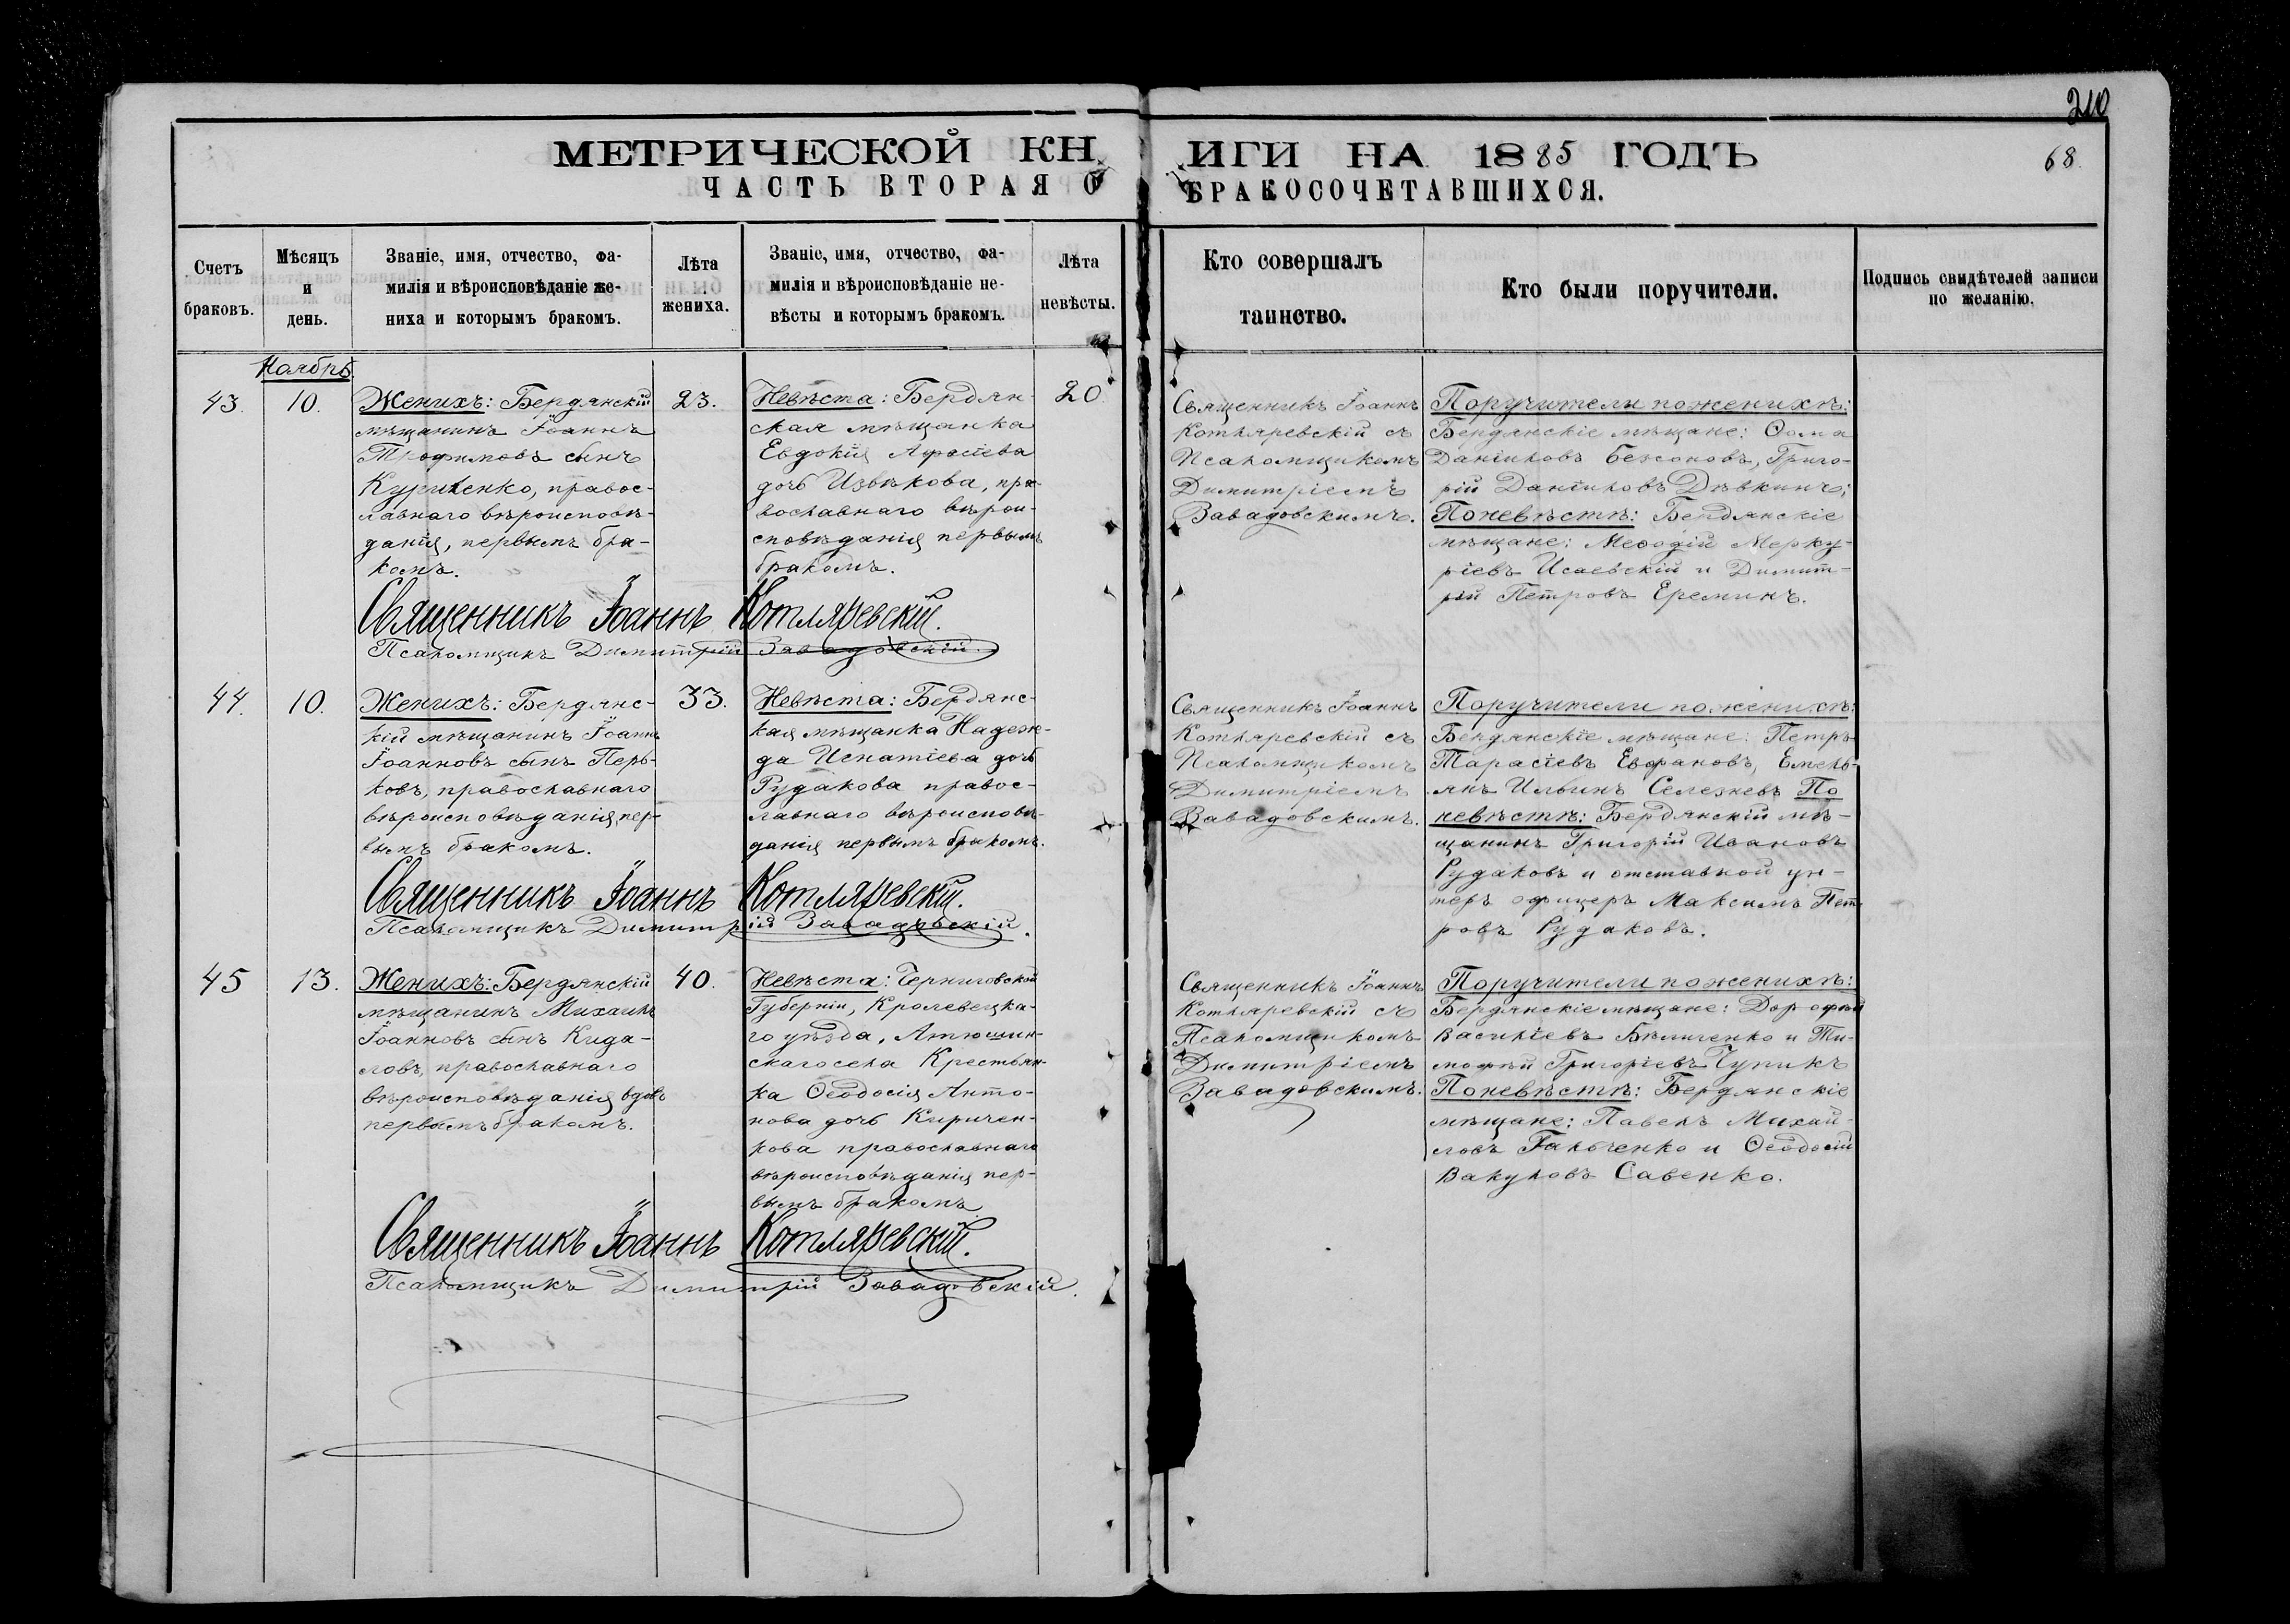 210
МЕТРИЧЕСКОЙ КНИГИ НА 1885 ГОДЪ
68.
ЧАСТЬ ВТОРАЯ О БРАКОСОЧЕТАВШИХСЯ.
Счетъ браковъ.
Мѣсяцъ и день.
Званіе, имя, отчество, фа-
милія и вѣроисповѣданіе же-
ниха и которымъ бракомъ.
Лѣта жениха.
Званіе, имя, отчество, фа-
милія и вѣроисповѣданіе не-
вѣсты и которымъ бракомъ.
Лѣта невѣсты.
Кто совершалъ
таинство.
Кто были поручители.
Подпись свидѣтелей записи
по желанію.
Ноябрь.
43.
10.
Женихъ: Бердянскій
мѣщанинъ Іоаннъ
Трофимовъ сынъ
Куриленко, правос-
лавнаго вѣроисповѣ-
данія, первымъ бра-
комъ.
23.
Невѣста: Бердян-
ская мѣщанка
Евдокія
дочь Извѣкова, пра-
вославнаго вѣрои-
сповѣданія первымъ
бракомъ.
20
Священникъ Іоаннъ
Котляревскій съ
Псаломщикомъ
Димитріемъ
Завадовскимъ.
Поручители по женихѣ:
Бердянскіе мѣщане: Ѳома
Даніиловъ Безсоновъ, Григо-
рій Даніиловъ Дѣвкинъ;
По невѣстѣ: Бердянскіе
мѣщане: Меѳодій Мерку-
ріевъ Исаевскій и Димит-
рій Петровъ Ереминъ.
Священникъ Іоаннъ Котляревскій.
Псаломщикъ Димитрій Завадовскій.
44.
10.
Женихъ: Бердянс-
кій мѣщанинъ Іоаннъ
Іоанновъ сынъ Перь-
ковъ, православнаго
вѣроисповѣданія, пер-
вымъ бракомъ.
33.
Невѣста: Бердянс-
кая мѣщанка Надеж-
да Игнатіева дочь
Рудакова правос-
лавнаго вѣроисповѣ-
данія первымъ бракомъ.
Священникъ Іоаннъ
Котляревскій съ
Псаломщикомъ
Димитріемъ
Завадовскимъ.
Поручители по женихѣ:
Бердянскіе мѣщане: Петръ
Тарасіевъ Евфановъ, Емель-
янъ Ильинъ Селезневъ По
невѣстѣ: Бердянскій мѣ-
щанинъ Григорій Ивановъ
Рудаковъ и отставной ун-
теръ офицеръ Максимъ Пет-
ровъ Рудаковъ.
Священникъ Іоаннъ Котляревскій.
Псаломщикъ Димитрій Завадовскій.
45
13.
Женихъ: Бердянскій
мѣщанинъ Михаилъ
Іоанновъ сынъ Кида-
ловъ, православнаго
вѣроисповѣданія вдовъ
первымъ бракомъ.
40.
Невѣста: Черниговской
Губерніи, Кролевецка-
го уѣзда, Атюшин-
скаго села Крестьян-
ка Ѳеодосія Анто-
нова дочь Киричен-
кова православнаго
вѣроисповѣданія пер-
вымъ бракомъ.
Священникъ Іоаннъ
Котляревскій съ
Псаломщикомъ
Димитріемъ
Завадовскимъ.
Поручители по женихѣ:
Бердянскіе мѣщане: Дорофей
Василіевъ Бѣличенко и Ти-
мофей Григоріевъ Чупикъ
По невѣстѣ: Бердянскіе
мѣщане: Павелъ Михай-
ловъ Гальченко и Ѳеодосій
Вакуловъ Савенко.
Священникъ Іоаннъ Котляревскій.
Псаломщикъ Димитрій Завадовскій.